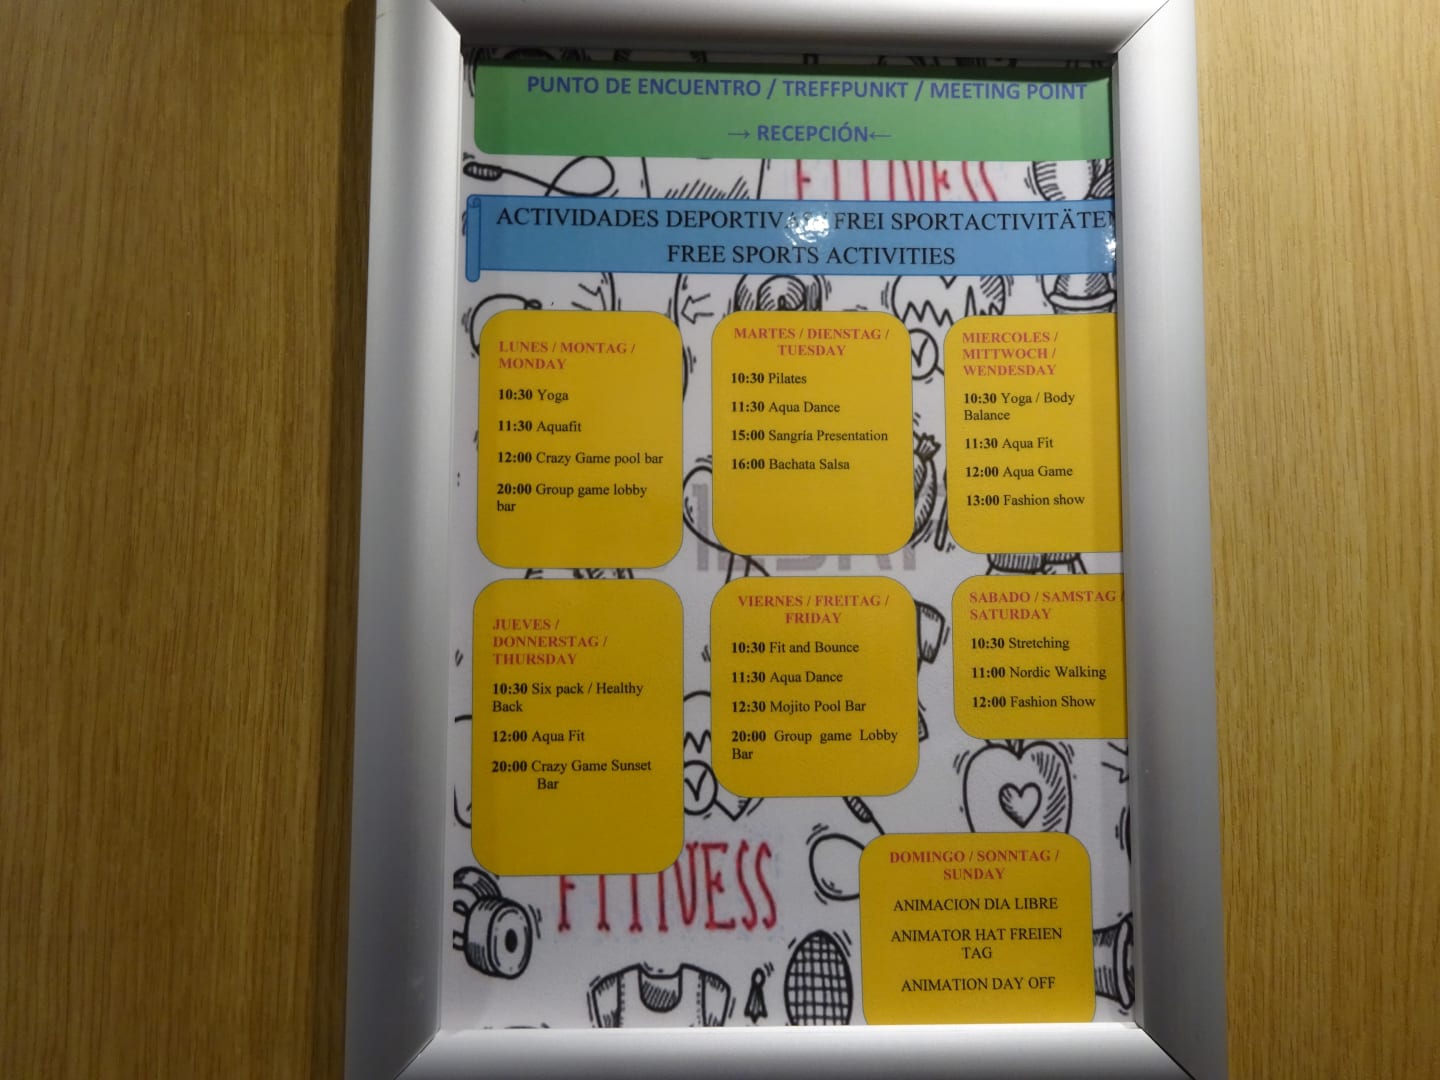 PUNTO DE ENCUENTRO / TREFFPUNKT / MEETING POINT
→ RECEPCIÓN←
FITNESS
ACTIVIDADES DEPORTIVAS / FREI SPORTACTIVITÄTEN
FREE SPORTS ACTIVITIES
LUNES / MONTAG /
MONDAY
10:30 Yoga
11:30 Aquafit
12:00 Crazy Game pool bar
20:00 Group game lobby
bar
MARTES / DIENSTAG /
TUESDAY
10:30 Pilates
11:30 Aqua Dance
15:00 Sangría Presentation
16:00 Bachata Salsa
MIERCOLES /
MITTWOCH /
WENDESDAY
10:30 Yoga / Body
Balance
11:30 Aqua Fit
12:00 Aqua Game
13:00 Fashion show
JUEVES /
DONNERSTAG /
THURSDAY
10:30 Six pack / Healthy
Back
12:00 Aqua Fit
20:00 Crazy Game Sunset
Bar
VIERNES / FREITAG /
FRIDAY
10:30 Fit and Bounce
11:30 Aqua Dance
12:30 Mojito Pool Bar
20:00 Group game Lobby
Bar
SABADO / SAMSTAG /
SATURDAY
10:30 Stretching
11:00 Nordic Walking
12:00 Fashion Show
FITNESS
DOMINGO / SONNTAG /
SUNDAY
ANIMACION DIA LIBRE
ANIMATOR HAT FREIEN
TAG
ANIMATION DAY OFF